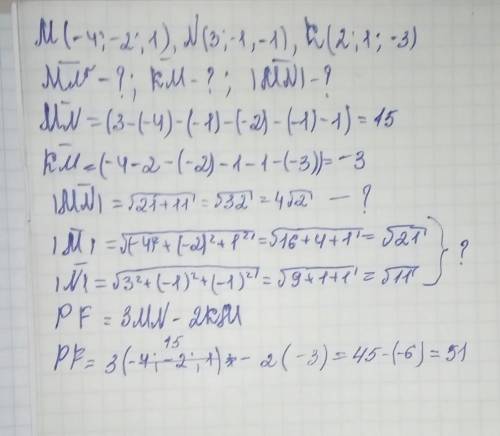 M(-4;-2;1), N(3;-1;-1), K(2;1;-3)
MN - ?; KM - ?; |MN| - ?
MN = (3-(-4)-(-1)-(-2)-(-1)-1) = 15
KM = (-4-2-(-2)-1-1-(-3)) = -3
|MN| = √21+11 = √32 = 4√2 — ?
|M| = √(-4)²+(-2)²+1² = √16+4+1 = √21
|N| = √3²+(-1)²+(-1)² = √9+1+1 = √11 } ?
PF = 3MN - 2KM
15
PF = 3(-4;-2;1) - 2(-3) = 45-(-6) = 51